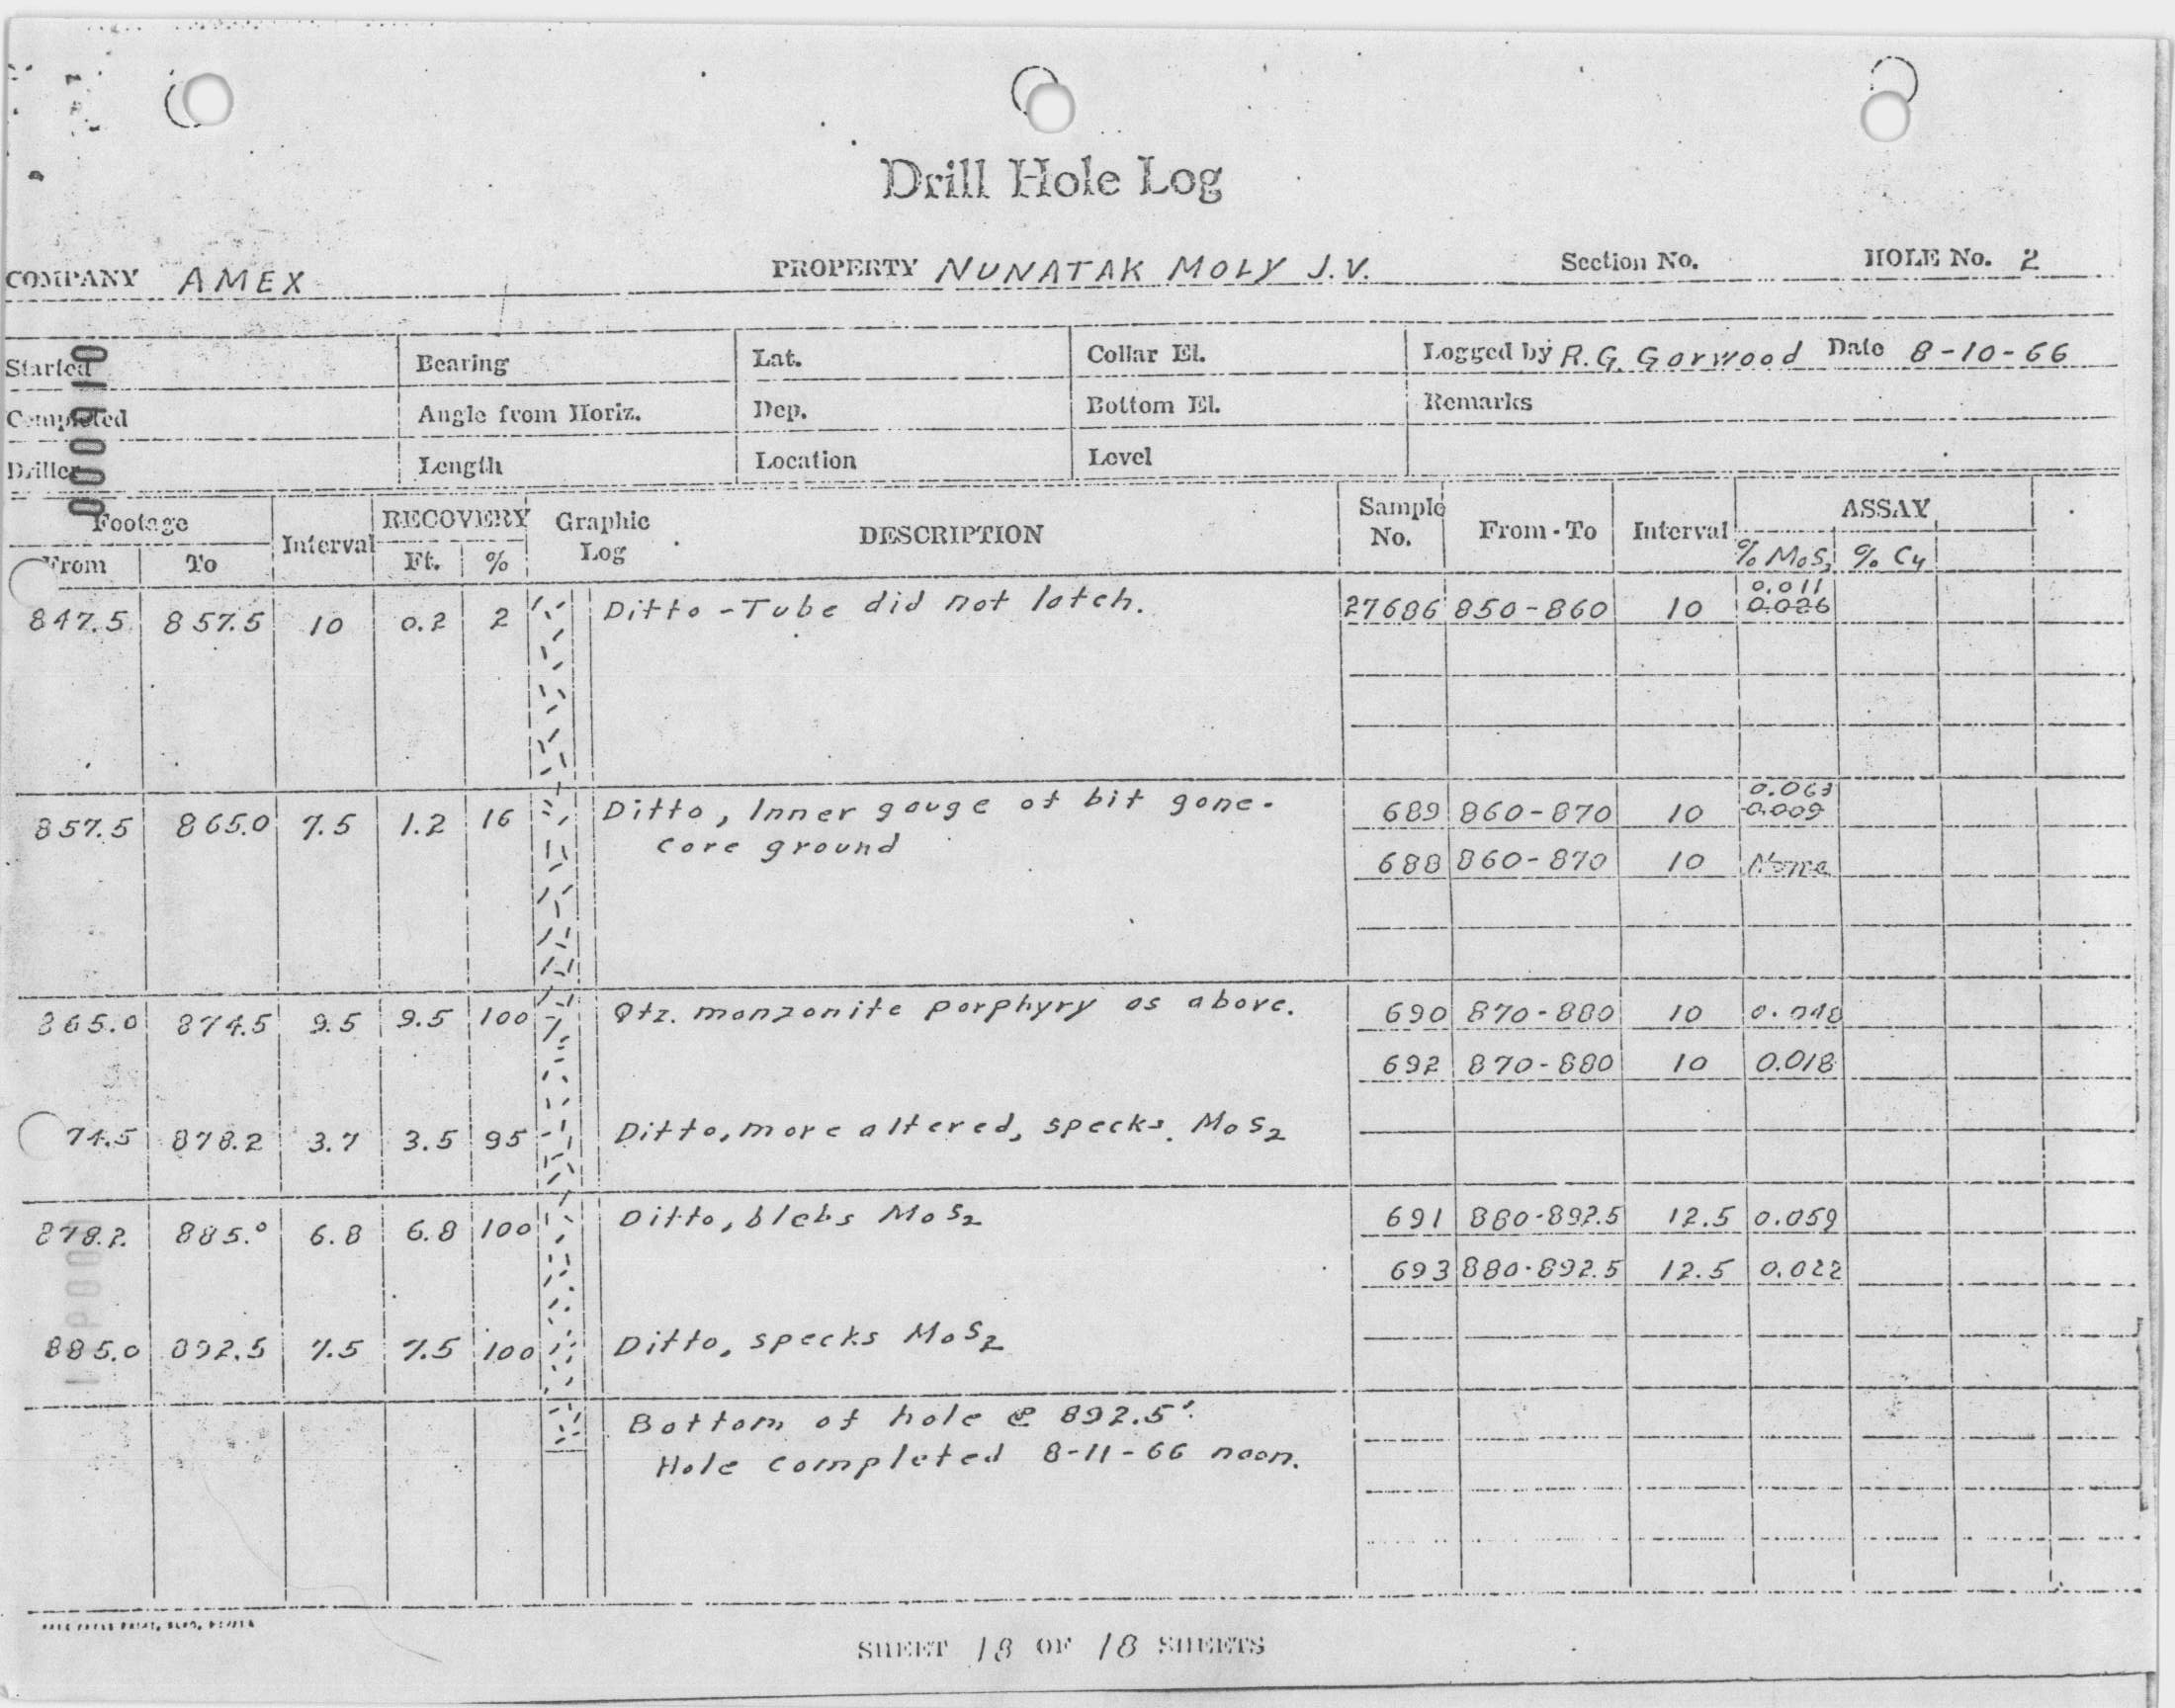 Drill Hole Log
COMPANY AMEX PROPERTY NUNATAK MOLY J.V. Section No. HOLE No. 2
Started Bearing Lat. Collar El. Logged by R.G. Garwood Date 8-10-66
Completed Angle from Horiz. Dep. Bottom El. Remarks
Driller Length Location Level
000910
Footage Interval RECOVERY Graphic Log DESCRIPTION Sample No. From - To Interval ASSAY
From To Ft. % % MoS2 % Cu
0.011
847.5 857.5 10 0.2 2 Ditto - Tube did not latch. 27686 850-860 10 0.026
0.063
857.5 865.0 7.5 1.2 16 Ditto, Inner gauge of bit gone. 689 860-870 10 0.009
core ground 688 860-870 10 None
865.0 874.5 9.5 9.5 100 Qtz. monzonite porphyry as above. 690 870-880 10 0.048
692 870-880 10 0.018
74.5 878.2 3.7 3.5 95 Ditto, more altered, specks MoS2
878.2 885.0 6.8 6.8 100 Ditto, blebs MoS2 691 880-892.5 12.5 0.059
693 880-892.5 12.5 0.022
885.0 892.5 7.5 7.5 100 Ditto, specks MoS2
Bottom of hole @ 892.5'
Hole completed 8-11-66 noon.
SHEET 18 OF 18 SHEETS